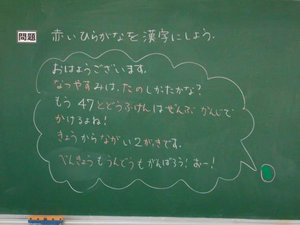 問題 赤いひらがなを漢字にしよう.
おはようございます.
なつやすみは、たのしかったかな?
もう 47とどうふけんはぜんぶ かんじで
かけるよね!
きょうから ながい2がっきです.
べんきょうも うんどうも がんばろう! おー!